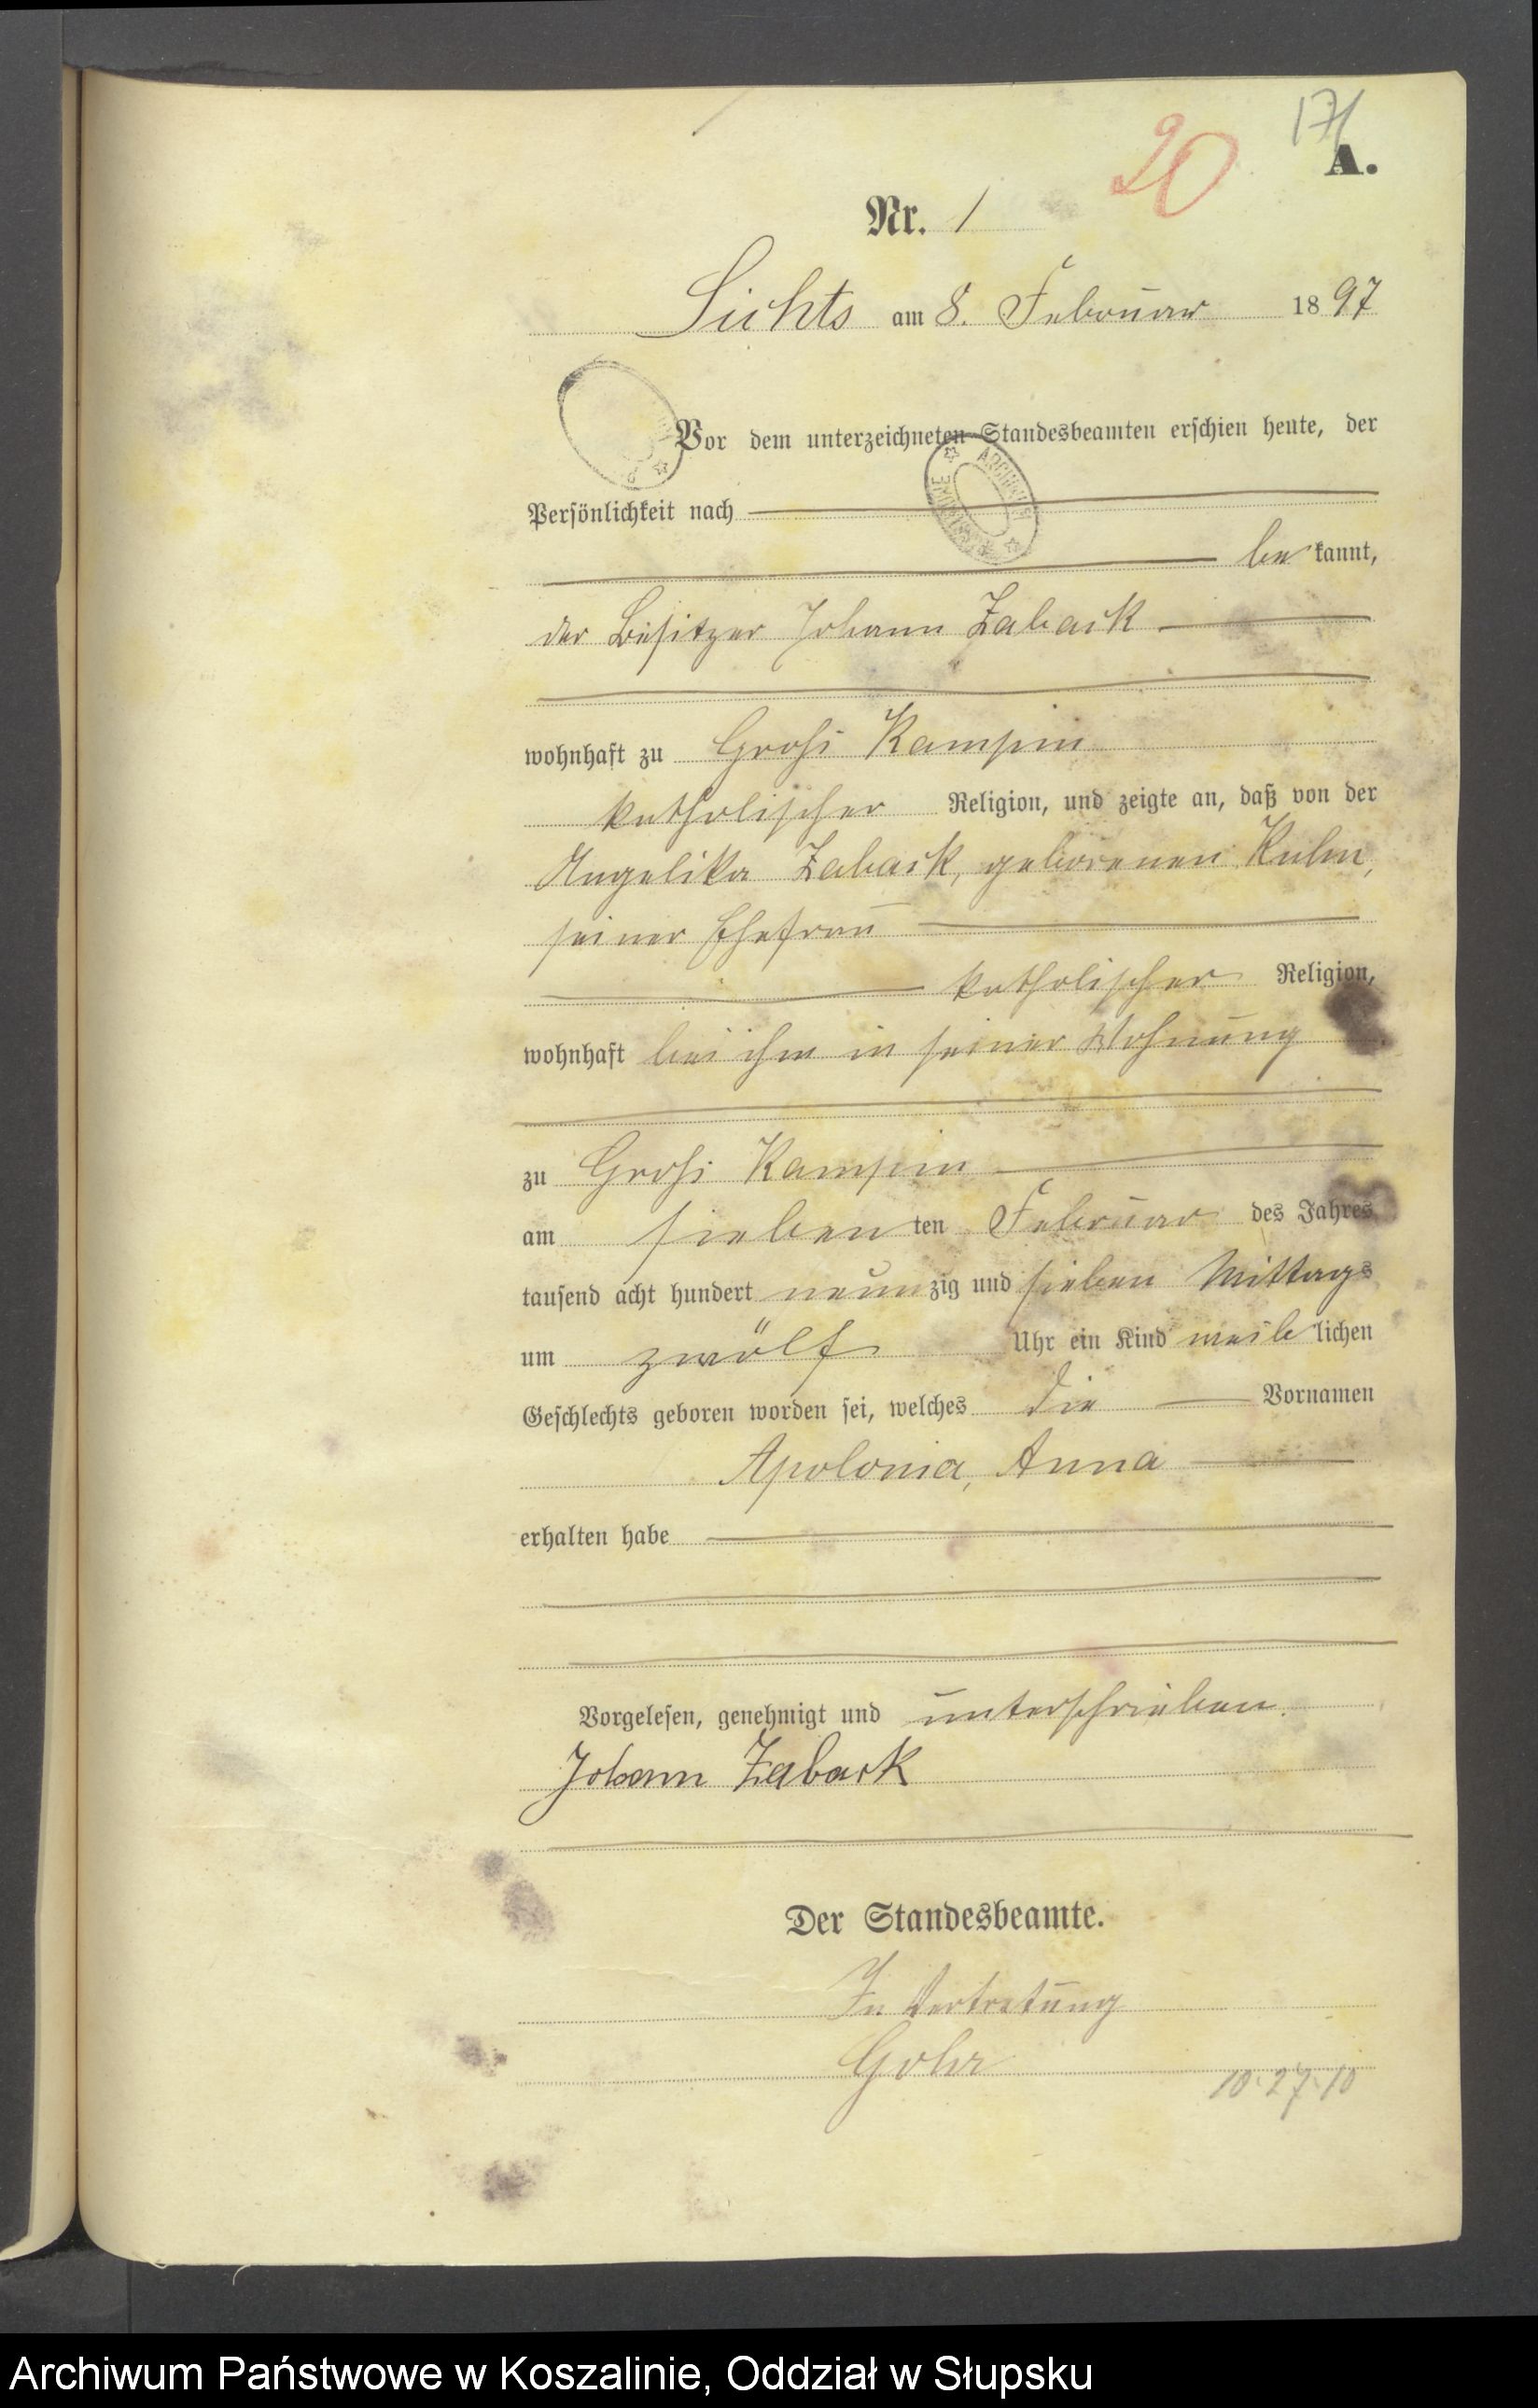 171
20
A.
Nr. 1
Lichts am 8. Februar 1897
Vor dem unterzeichneten Standesbeamten erschien heute, der
Persönlichkeit nach
be kannt,
der Besitzer Johann Zaback
wohnhaft zu Groß Kampin
katholischer Religion, und zeigte an, daß von der
Angelika Zaback, geborenen Kulm,
seiner Ehefrau
katholischer Religion,
wohnhaft bei ihm in seiner Wohnung
zu Groß Kampin
am sieben ten Februar des Jahres
tausend acht hundert neun zig und sieben Mittags
um zwölf Uhr ein Kind weib lichen
Geschlechts geboren worden sei, welches die Vornamen
Apolonia, Anna
erhalten habe
Vorgelesen, genehmigt und unterschrieben.
Johann Zaback
Der Standesbeamte.
In Vertretung
Gohr
10.27.10
Archiwum Państwowe w Koszalinie, Oddział w Słupsku